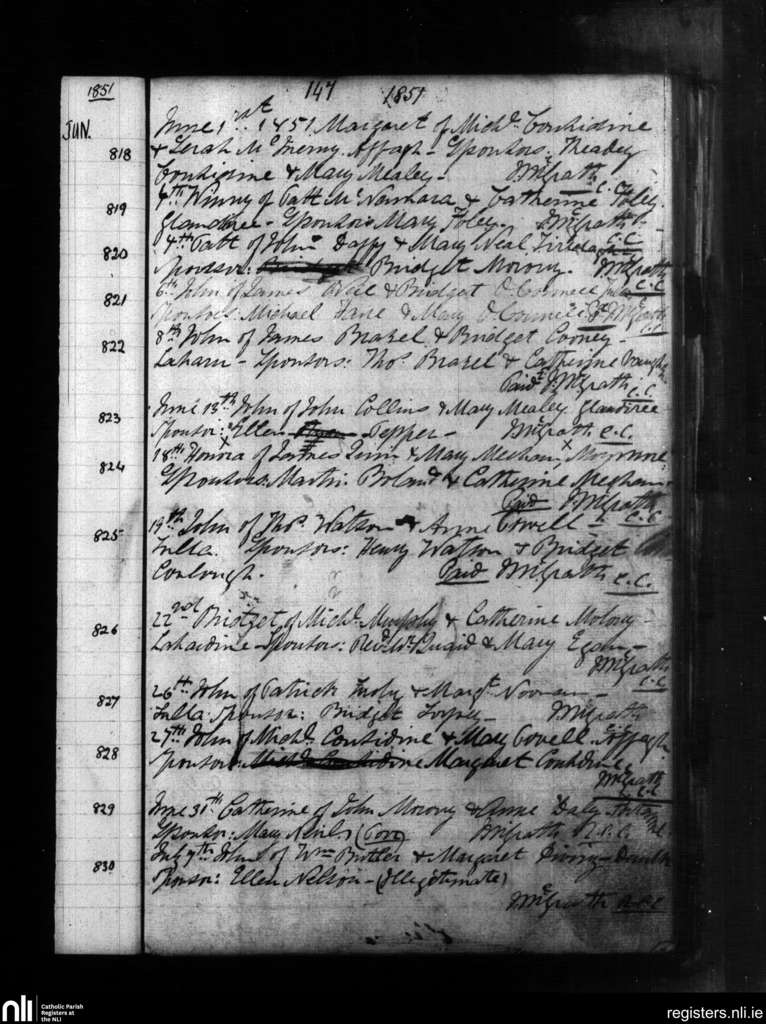 1851
147 1851
JUN.
June 1st 1851 Margaret of Michl. Considine
818
& Sarah McInerny Affagh - Sponsors: Thadey
Considine & Mary Mealey. McGrath C.C.
4th Winny of Patt McNamara & Catherine Foley.
819
Glandree - Sponsors Mary Foley. McGrath C.C.
4th Patt of John Daffy & Mary Neal
820
Sponsor: Bridget Morony. McGrath C.C.
6th John of James Neil & Bridget O'Connell Tulla
821
Sponsors: Michael Hane & Mary O'Connell McGrath C.C.
8th John of James Brazel & Bridget Cooney -
822
Laharn - Sponsors: Thos. Brazel & Catherine Vaughan
Paid McGrath C.C.
June 13th John of John Collins & Mary Mealey Glandree
823
Sponsor: Ellen Pepper - McGrath C.C.
18th Honora of James Quin & Mary Meehan
824
Sponsors Martin Boland & Catherine Meehan
Paid McGrath C.C.
19th John of Thos. Watson & Anne Covell -
825
Tulla. Sponsors: Henry Watson & Bridget
Conlough. Paid McGrath C.C.
22nd Bridget of Michl. Murphy & Catherine Molony -
826
Lahardine - Sponsors: Revd. Wm. Quaid & Mary Egan -
McGrath C.C.
26th John of Patrick & Margt. Noonan -
827
Tulla Sponsor: Bridget McGrath
27th John of Michl. Considine & Mary Covell Affagh
828
Sponsor: Margaret Considine
McGrath C.C.
June 31th Catherine of John Morony & Anne Daly
829
Sponsor: Mary (Poor) McGrath
July 7th John of Wm Butler & Margaret
830
Sponsor: Ellen Nelson - (Illegitimate)
McGrath
nli
Catholic Parish
Registers at
the NLI
registers.nli.ie